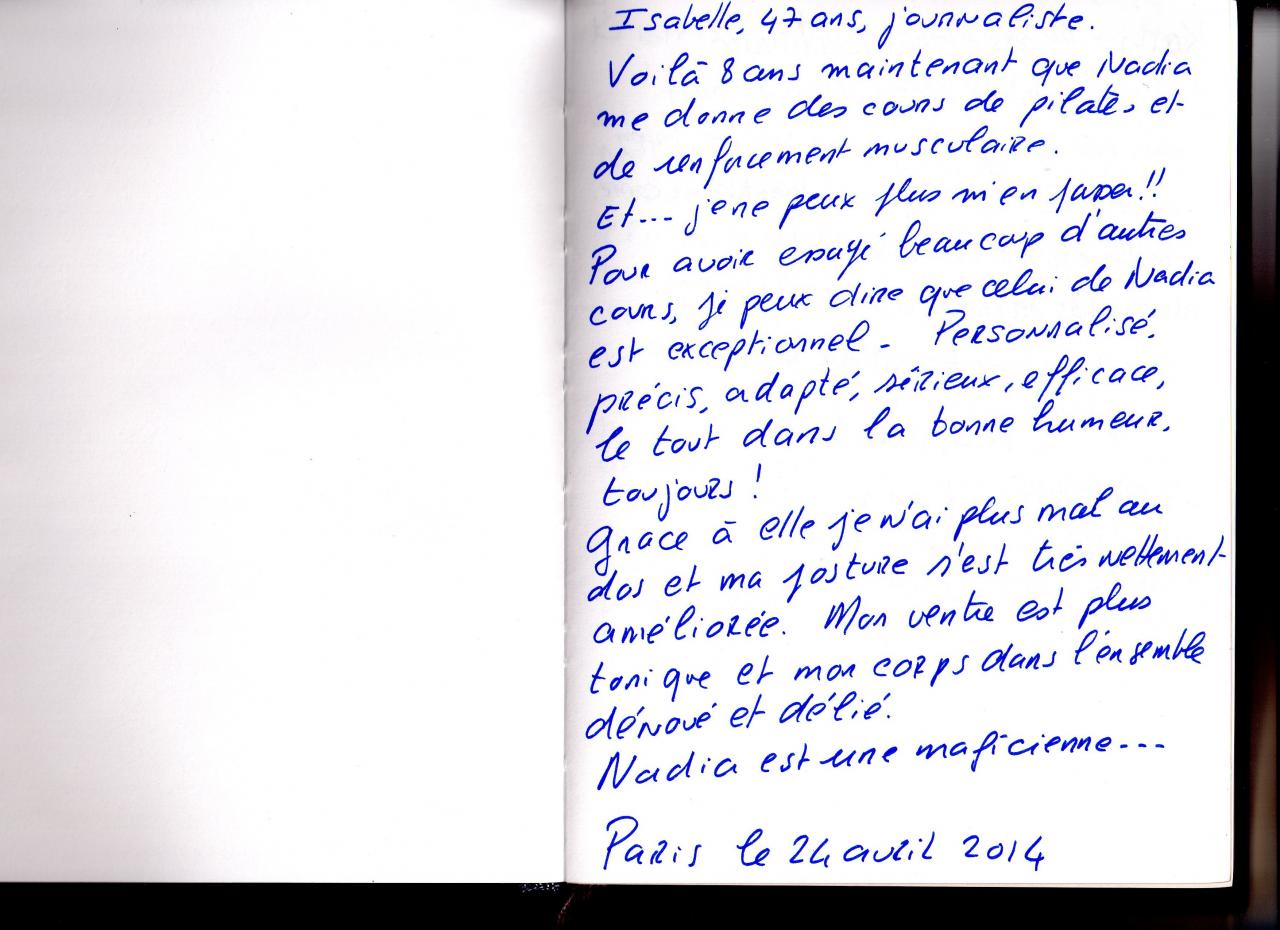 Isabelle, 47 ans, journaliste.
Voilà 8 ans maintenant que Nadia
me donne des cours de pilates et
de renforcement musculaire.
Et... je ne peux plus m'en passer!!
Pour avoir essayé beaucoup d'autres
cours, je peux dire que celui de Nadia
est exceptionnel - Personnalisé,
précis, adapté, sérieux, efficace,
le tout dans la bonne humeur,
toujours !
Grace à elle je n'ai plus mal au
dos et ma posture s'est très nettement
améliorée. Mon ventre est plus
tonique et mon corps dans l'ensemble
dénoué et délié.
Nadia est une magicienne---
Paris le 24 avril 2014